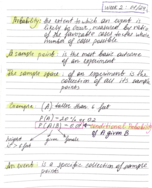 WEEK 2:
Probability: the extent to which an event is
likely to occur, measured by the ratio
of the favourable cases to the whole
number of cases possible.
A sample point: is the most basic outcome
of an experiment
The sample space: of an experiments is the
collection of all its sample
points.
Example: (A) taller than 6 feet
P(A) = 20% or 0.2
P(A|B) = Conditional Probability
of A given B
given female
> 6 feet
An event: is a specific collection of sample
points